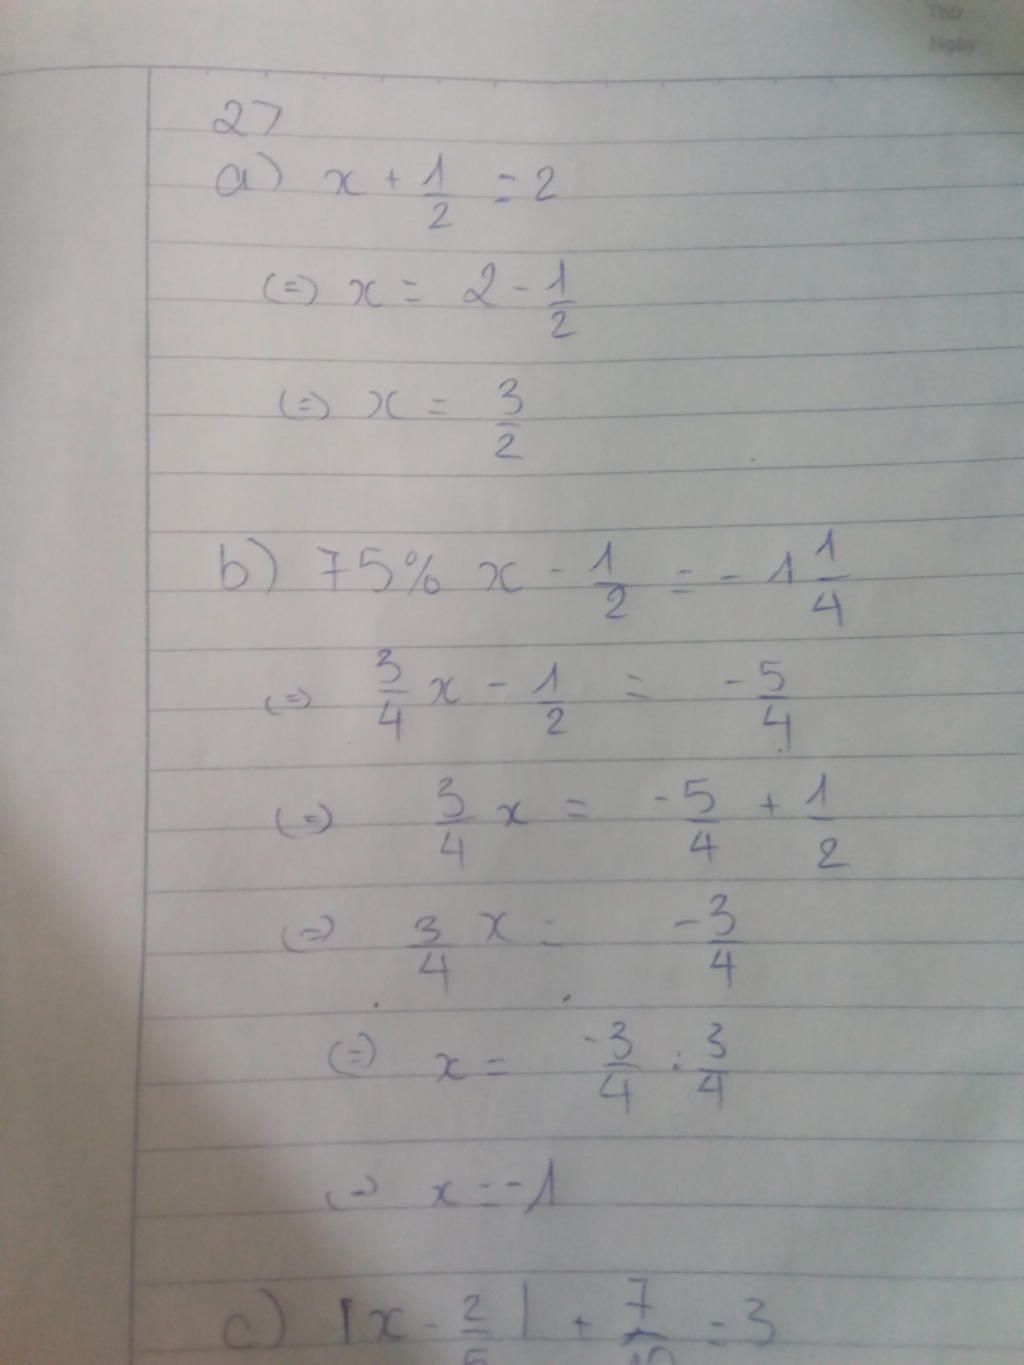 Thứ
Ngày
2>
a) x + 1/2 = 2
(=) x = 2 - 1/2
(=) x = 3/2
b) 75% x - 1/2 = - 1 1/4
(=) 3/4 x - 1/2 = -5/4
(=) 3/4 x = -5/4 + 1/2
(=) 3/4 x = -3/4
(=) x = -3/4 : 3/4
(=) x = -1
c) |x - 2/5| + 7/10 = 3